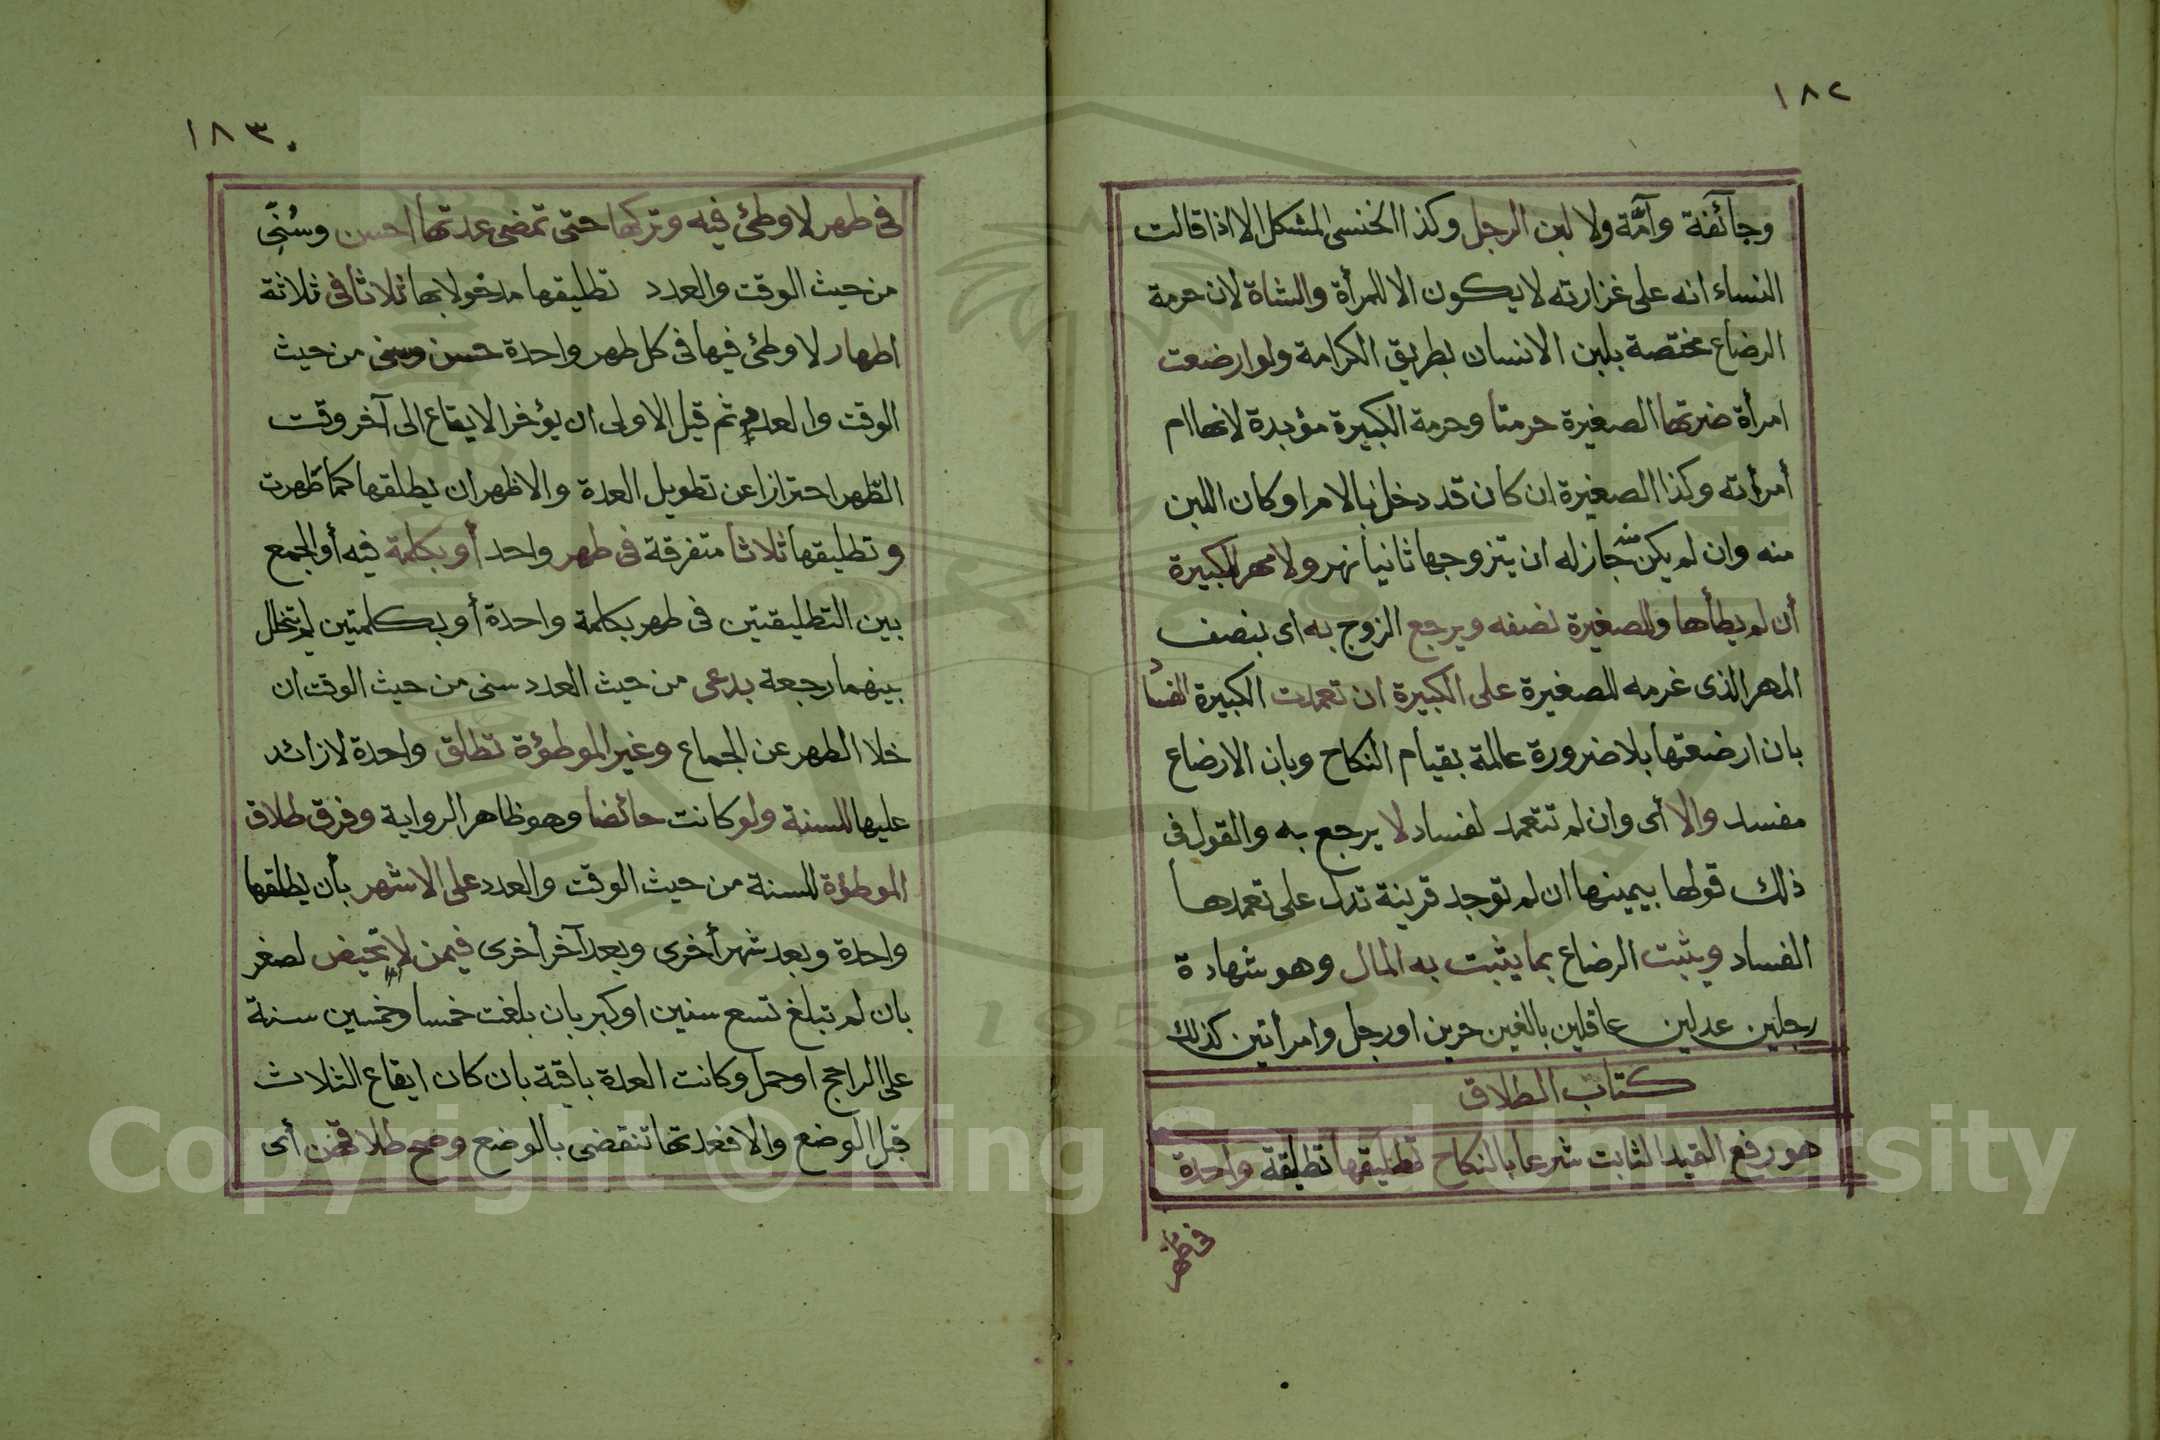 ١٨٢
وجائفة وآمّة ولا لبن الرجل وكذا الخنثى المشكل الا اذا قالت
النساء انه على غزارته لا يكون الا للمرأة والشاة لان حرمة
الرضاع مختصة بلبن الانسان بطريق الكرامة ولو ارضعت
امرأة ضرتها الصغيرة حرمتا وحرمة الكبيرة مؤبدة لانها ام
أمرأته وكذا الصغيرة ان كان قد دخل بالام او كان اللبن
منه وان لم يكن منه جاز له ان يتزوجها ثانيا ولا مهر للكبيرة
أن لم يطأها وللصغيرة نصفه ويرجع الزوج به اى بنصف
المهر الذى غرمه للصغيرة على الكبيرة ان تعمدت الكبيرة الفساد
بان ارضعتها بلا ضرورة عالمة بقيام النكاح وبان الارضاع
مفسد والا أى وان لم تتعمد لفساد لا يرجع به والقول فى
ذلك قولها بيمينها ان لم توجد قرينة تدل على تعمدها
الفساد ويثبت الرضاع بما يثبت به المال وهو شهادة
رجلين عدلين عاقلين بالغين حرين او رجل وامرأتين كذلك
كتاب الطلاق
هو رفع القيد الثابت شرعا بالنكاح تطليقها تطليقة واحدة
فى طهر
١٨٣
فى طهر لا وطئ فيه وتركها حتى تمضى عدتها احسن وسُنّى
من حيث الوقت والعدد تطليقها مدخولا بها ثلاثا فى ثلاثة
اطهار لا وطئ فيها فى كل طهر واحدة حسن وسنى من حيث
الوقت والعدد ثم قيل الاولى ان يؤخر الايقاع الى آخر وقت
الطهر احترازا عن تطويل العدة والاظهر ان يطلقها كما طهرت
وتطليقها ثلاثا متفرقة فى طهر واحد أو بكلمة فيه أو الجمع
بين التطليقتين فى طهر بكلمة واحدة أو بكلمتين لم تتخلل
بينهما رجعة بدعى من حيث العدد سنى من حيث الوقت ان
خلا الطهر عن الجماع وغير الموطؤة تطلق واحدة لا زائد
عليها للسنة ولو كانت حائضا وهو ظاهر الرواية وفرق طلاق
الموطؤة للسنة من حيث الوقت والعدد على الاشهر بأن يطلقها
واحدة وبعد شهر أخرى وبعد آخر أخرى فيمن لا تحيض لصغر
بان لم تبلغ تسع سنين او كبر بان بلغت خمسا وخمسين سنة
على الراجح او حمل وكانت العدة باقية بان كان ايقاع الثلاث
قبل الوضع والا فعدتها تنقضى بالوضع وصح طلاقهن أى
Copyright © King Saud University
1957